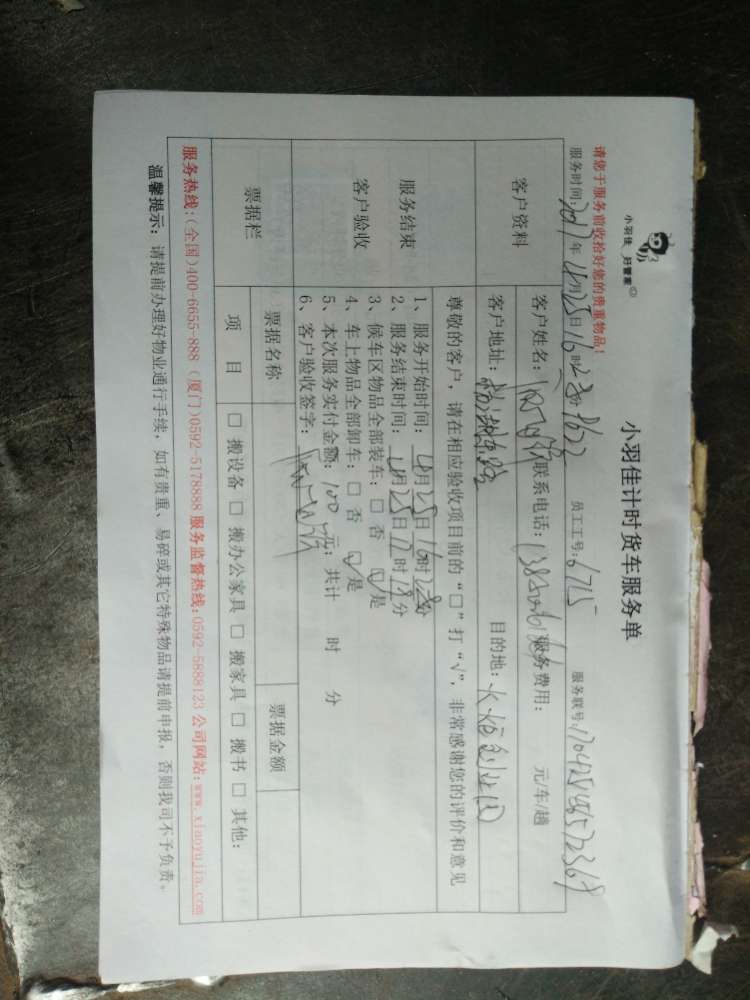 小羽佳 好管家
小羽佳计时货车服务单
请您于服务前收拾好您的贵重物品!
服务时间:2017年4月25日16时 员工工号:6715 服务联号:
客户资料
客户姓名: 联系电话: 服务费用: 元/车/趟
客户地址: 目的地:
尊敬的客户,请在相应验收项目前的“□”打“√”,非常感谢您的评价和意见
服务结束
客户验收
1、服务开始时间:4月25日16时28分
2、服务结束时间:4月25日17时18分
3、候车区物品全部装车:□ 否 ☑ 是
4、车上物品全部卸车:□ 否 ☑ 是
5、本次服务实付金额:100元;共计 时 分
6、客户验收签字:
票据栏
票据名称 票据金额
项 目 □ 搬设备 □ 搬办公家具 □ 搬家具 □ 搬书 □ 其他:
服务热线:(全国)400-6655-888 (厦门)0592-5178888 服务监督热线:0592-5888123 公司网站:www.xiaoyujia.com
温馨提示: 请提前办理好物业通行手续,如有贵重、易碎或其它特殊物品请提前申报,否则我司不予负责。